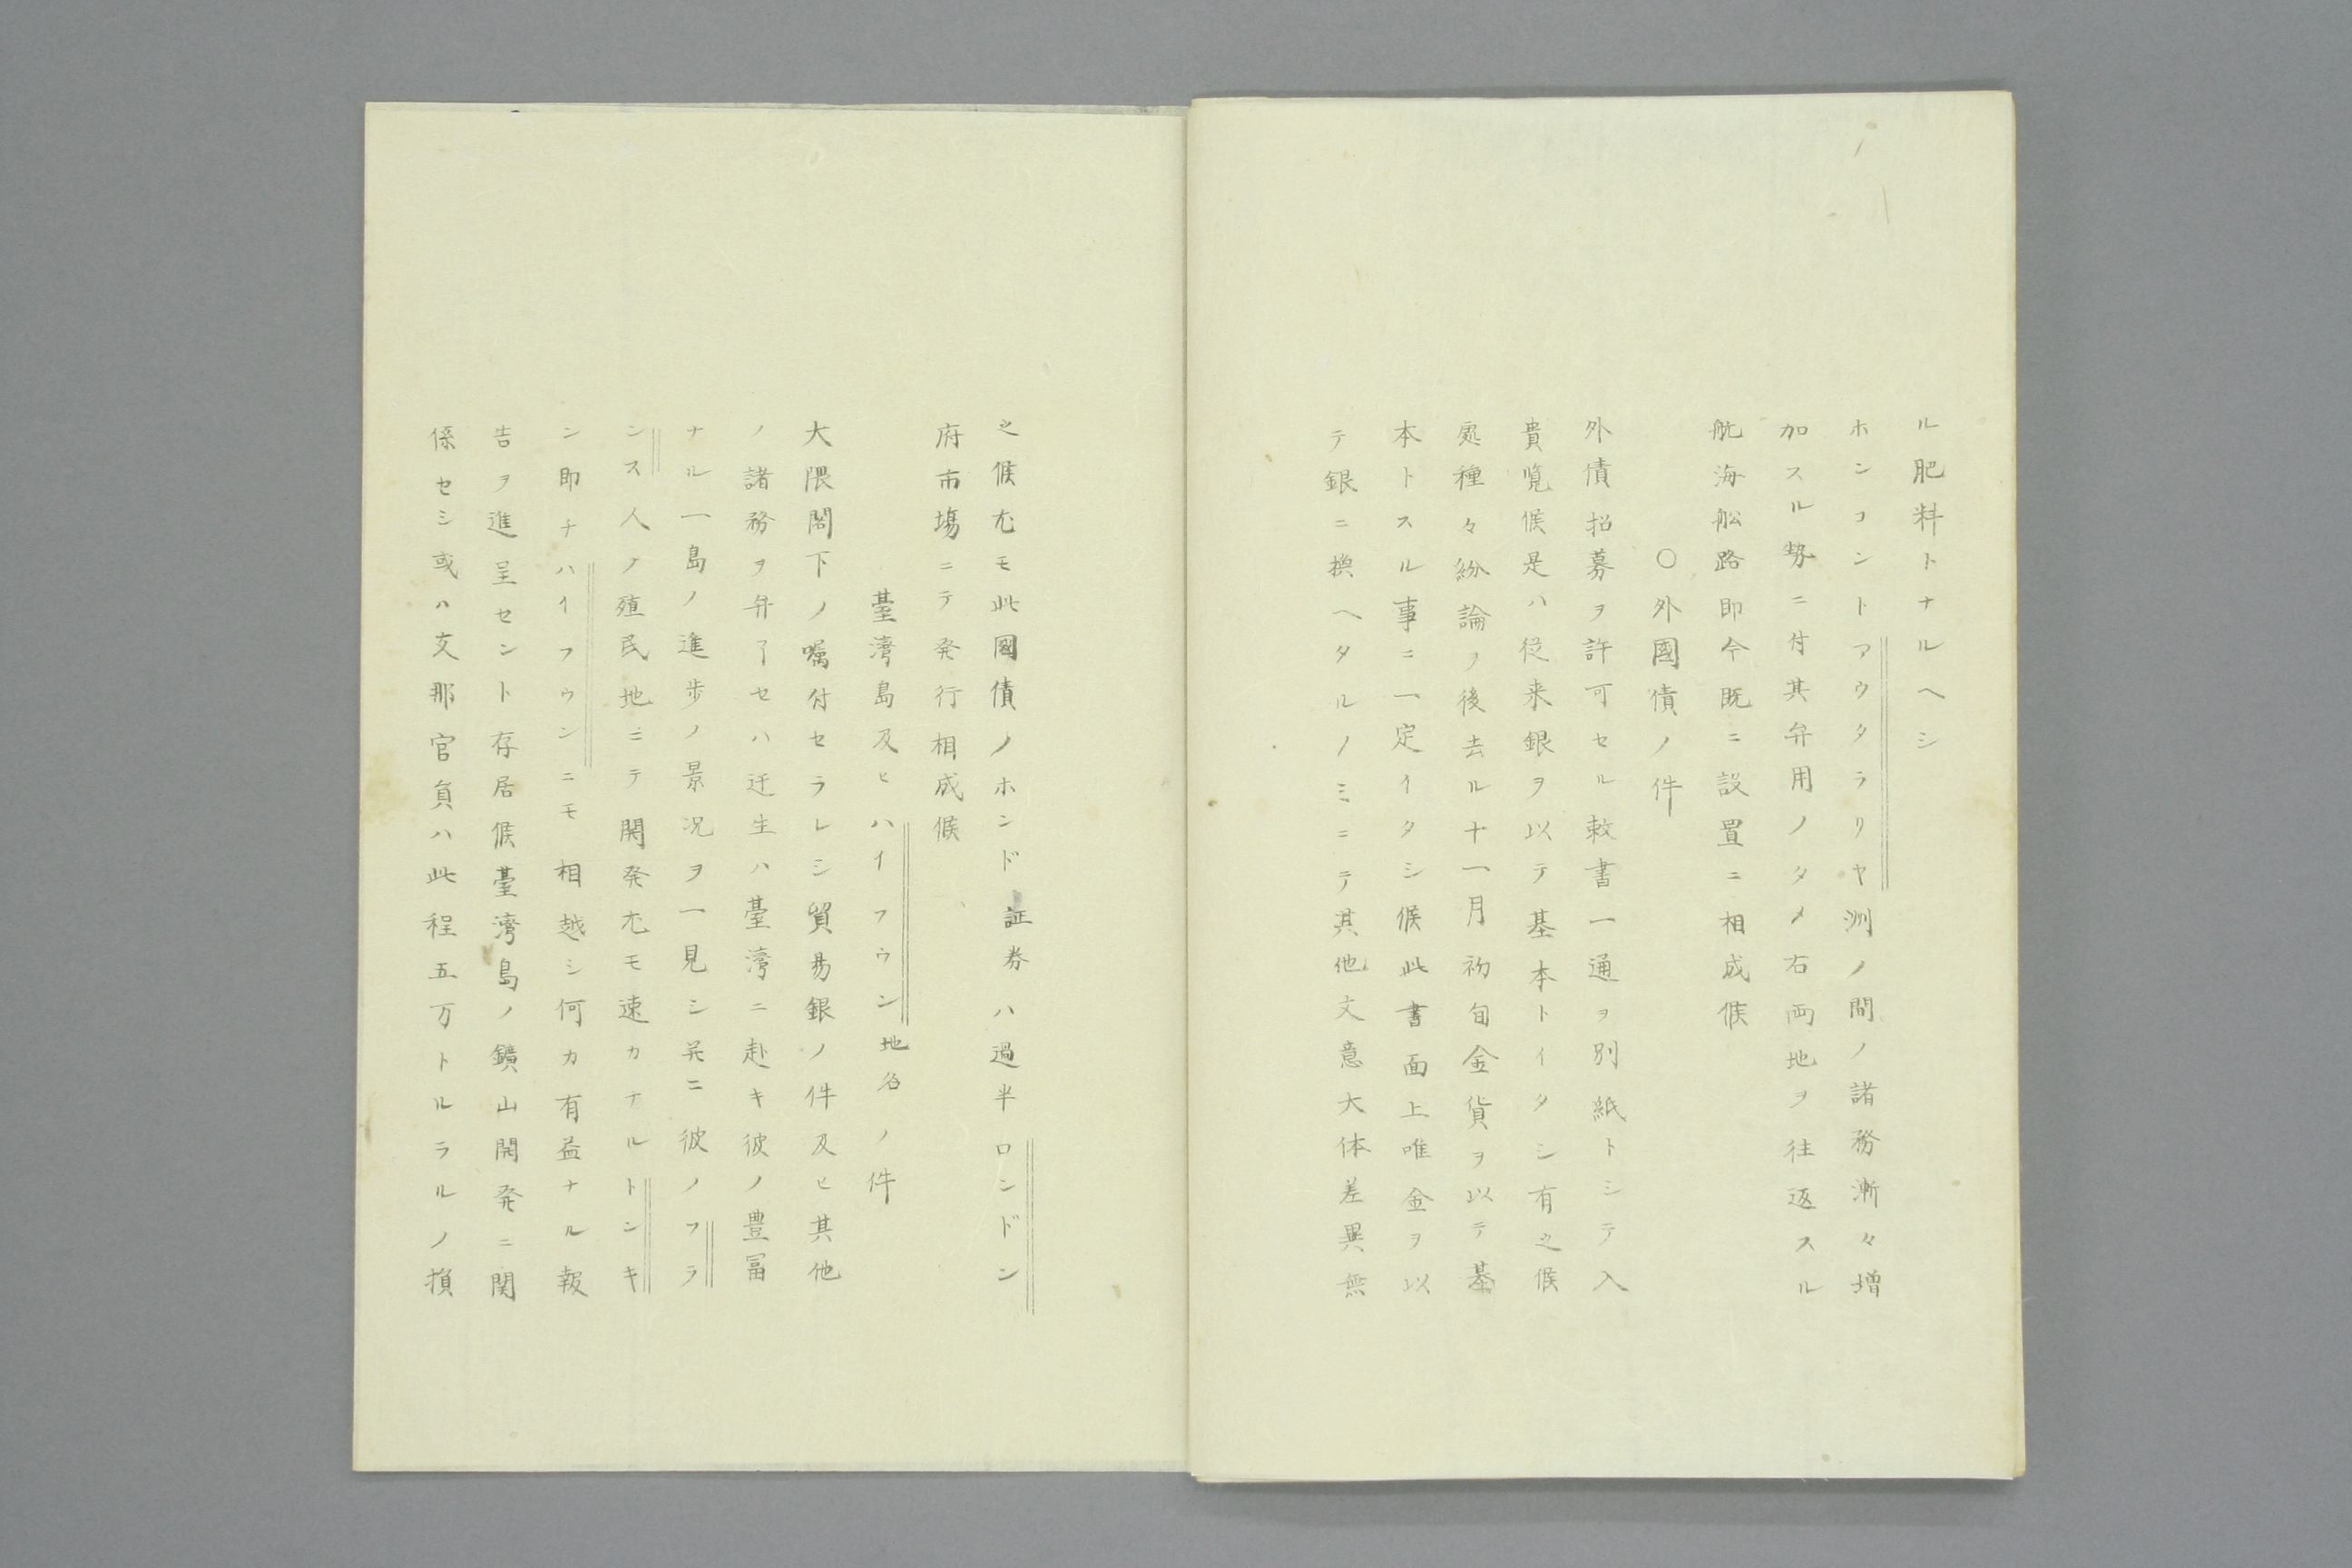 ル肥料トナルヘシ
ホンコントアウタラリヤ洲ノ間ノ諸務漸々増
加スル勢ニ付其弁用ノタメ右両地ヲ往返スル
航海舩路即今既ニ設置ニ相成候
〇外國債ノ件
外債招募ヲ許可セル敕書一通ヲ別紙トシテ入
貴覧候是ハ従来銀ヲ以テ基本トイタシ有之候
處種々紛論ノ後去ル十一月初旬金貨ヲ以テ基
本トスル事ニ一定イタシ候此書面上唯金ヲ以
テ銀ニ換ヘタルノミニテ其他文意大体差異無
之候尤モ此國債ノホンド証券ハ過半ロンドン
府市塲ニテ発行相成候
臺灣島及ヒハイフウン地名ノ件
大隈閣下ノ嘱付セラレシ貿易銀ノ件及ヒ其他
ノ諸務ヲ弁了セハ迂生ハ臺灣ニ赴キ彼ノ豊冨
ナル一島ノ進歩ノ景况ヲ一見シ并ニ彼ノフラ
ンス人ノ殖民地ニテ開発尤モ速カナルトンキ
ン即チハイフウンニモ相越シ何カ有益ナル報
告ヲ進呈セント存居候臺灣島ノ鑛山開発ニ関
係セシ或ハ支那官員ハ此程五万トルラルノ損